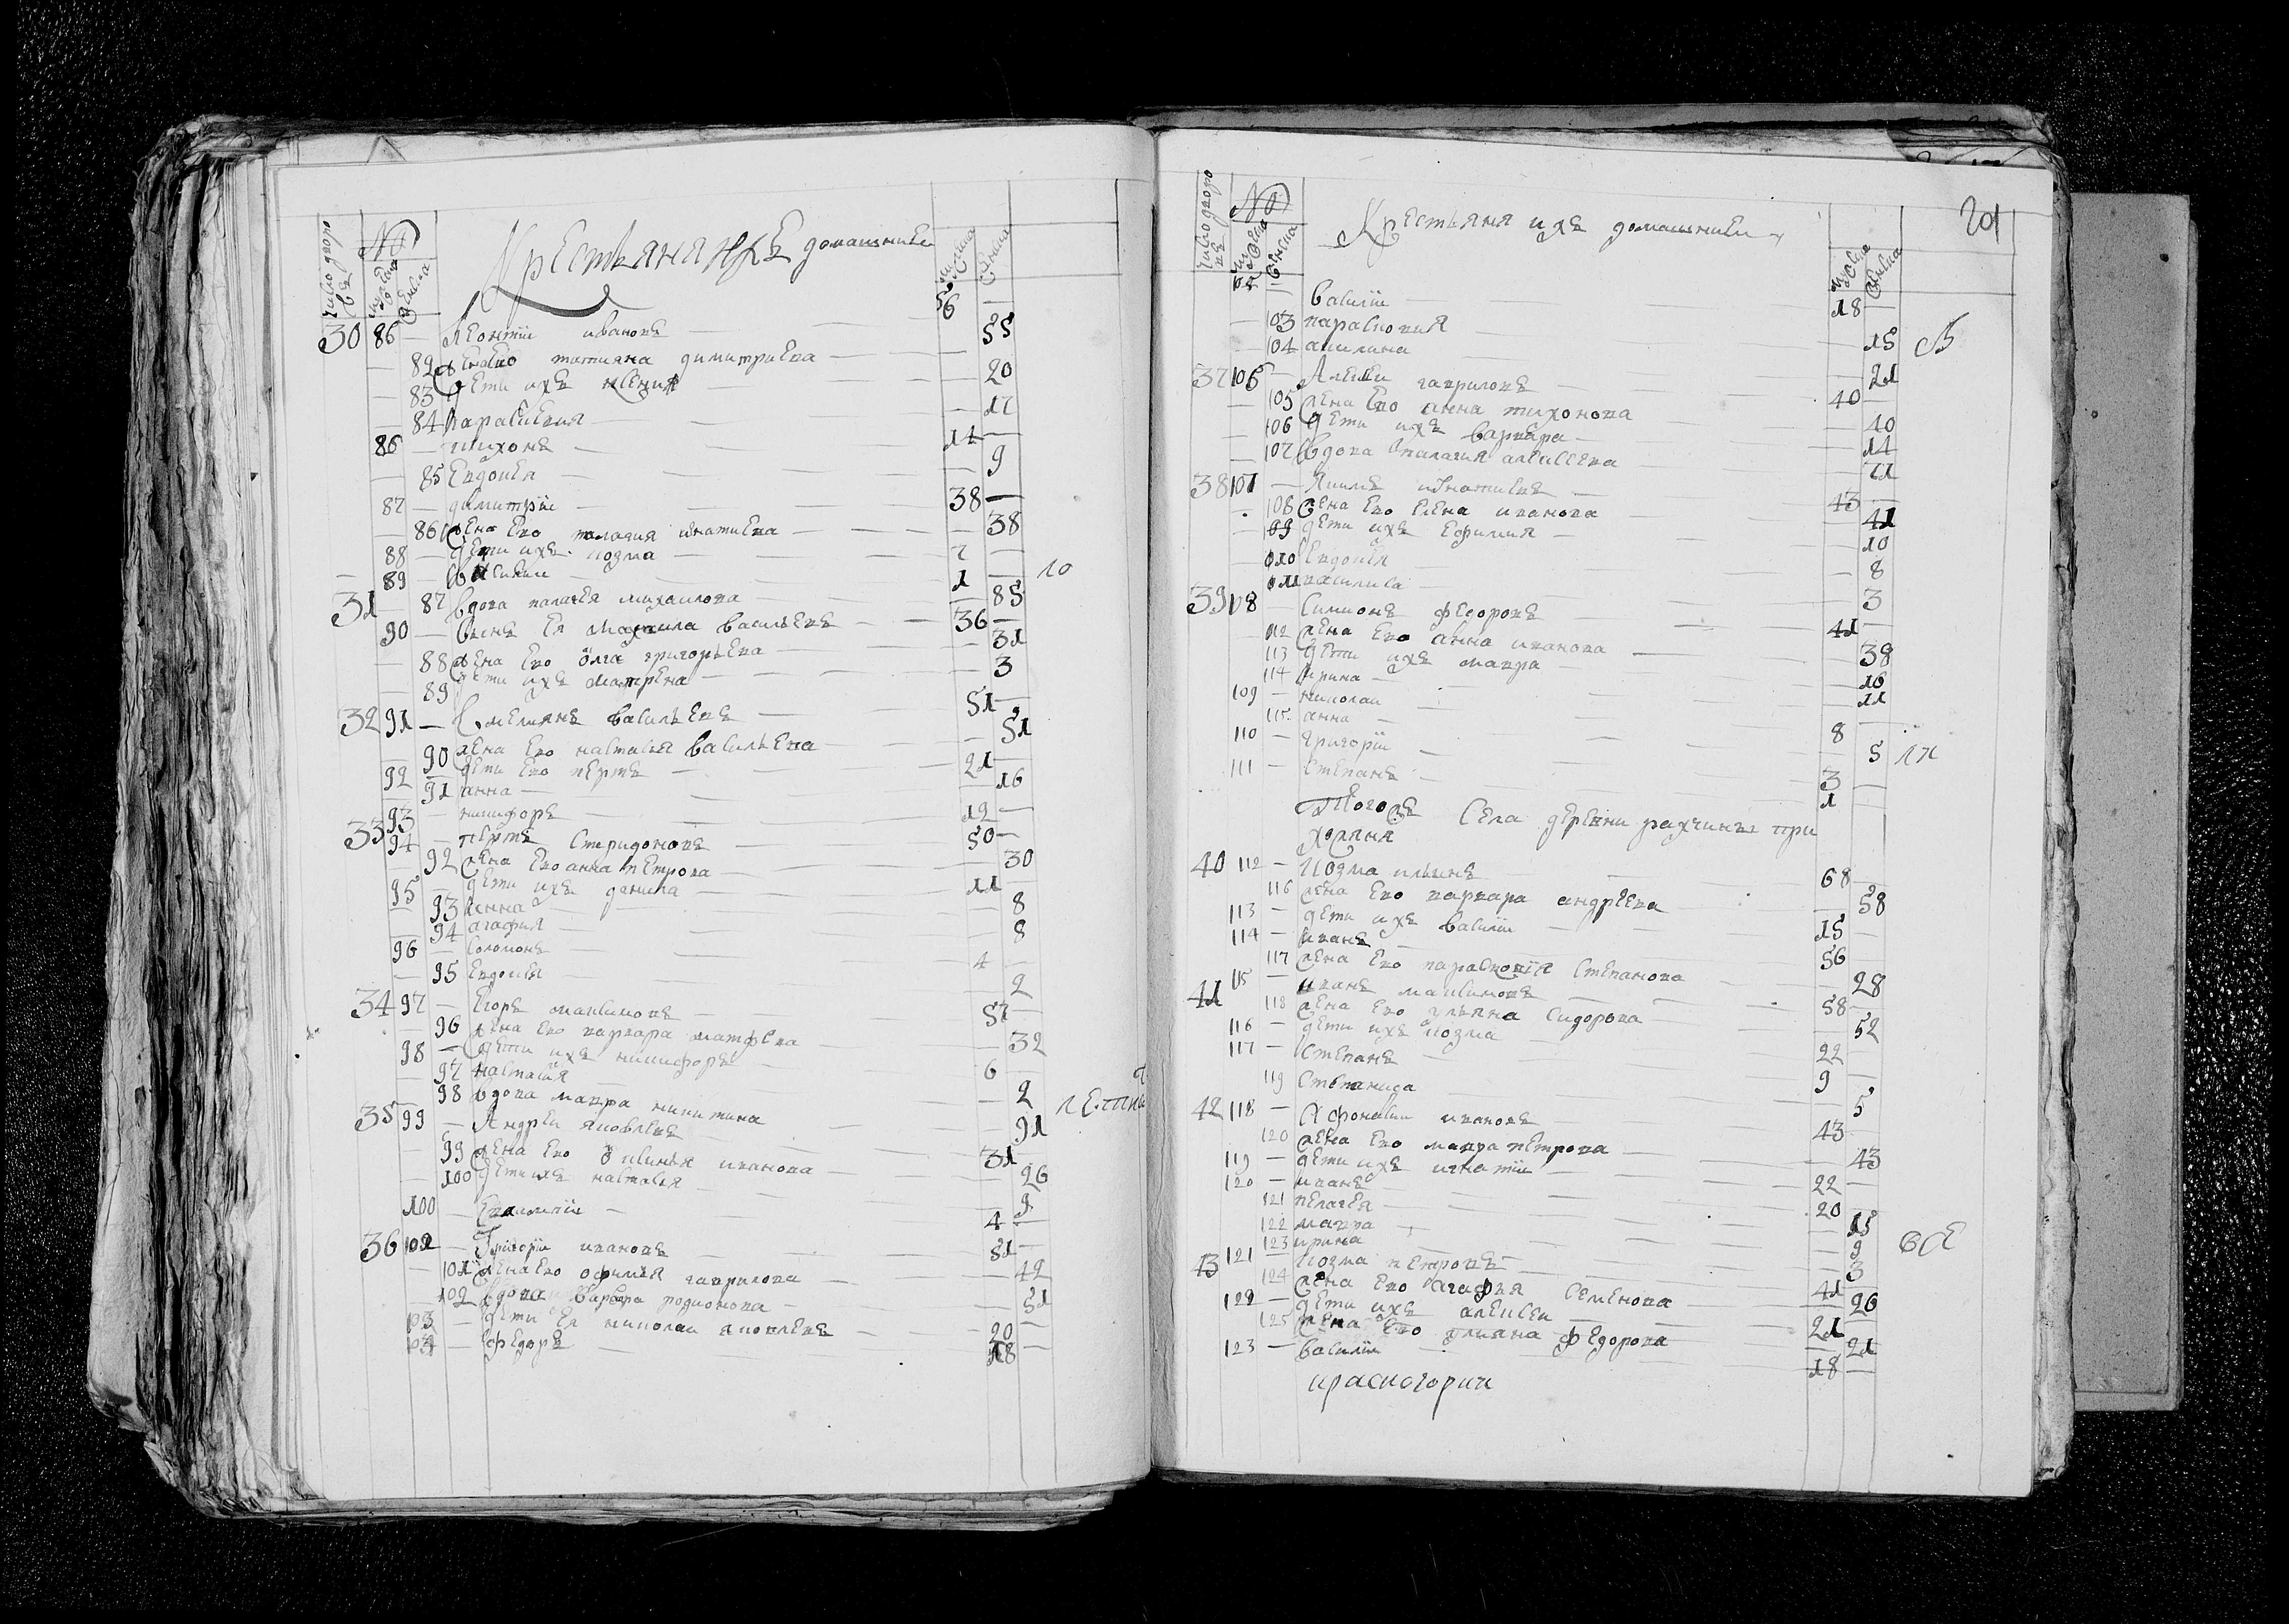 число дворовъ № мужеска женска Крестьяня ихъ домашнию мужеска женска
30 86 — Леонтїи ивановъ — 56 —
— 82 жена ево татияна димитриева — 55
— 83 дети ихъ ксения — 20
— 84 парасковия — 17
86 — тихонъ — 14 —
— 85 Евдокея — 9
87 — димитрїи — 38 —
— 86 жена ево палагия игнатиева — 38
88 — дети ихъ козма — 7 —
89 — василии — 1 — 10
31 — 87 вдова палагея михаилова — 85
90 — сынъ Ея михаила васильевъ — 36 —
— 88 жена Ево олга григорьева — 31
— 89 дети ихъ матрена — 3
32 91 — Емелиянъ васильевъ — 51 —
— 90 жена Ево насталья васильева — 51
92 — дети Ево петръ — 21 —
— 91 анна — 16
93 — никифоръ — 12 —
33 94 — петръ Спиридоновъ — 50 —
— 92 жена Ево анна петрова — 30
95 — дети ихъ данила — 11
— 93 анна — 8
— 94 агафия — 8
96 — Соломонъ — 4 —
— 95 Евдокея — 2
34 97 — Егоръ максимовъ — 57 —
— 96 жена Ево варвара матфеева — 32
98 — дети ихъ никифоръ — 6
— 97 насталия — 2
— 98 вдова мавра никитина — 91
35 99 — Андреи яковлевъ — 31
— 99 жена Ево аксинья иванова — 26
— 100 дети ихъ насталья — 9
100 — Евдокимїи — 4 —
36 102 — Григорїи ивановъ — 51 —
— 101 жена Ево офимья гаврилова — 42
— 102 вдова варвара родионова — 51
103 — дети Ея николаи яковлевъ — 20
104 — Федоръ — 18 —
201
число дворовъ № мужеска женска Крестьяня ихъ домашнии мужеска женска
105 — василїи — 18 —
— 103 парасковия — 15
— 104 акилина — 21
37 106 — Алексеи гавриловъ — 40 —
— 105 жена Ево анна тихонова — 40
— 106 дети ихъ варвара — 14
— 107 вдова пилагия алексеева — 71
38 107 — Якимъ игнатиевъ — 43 —
108 жена Ево Елена иванова — 41
109 дети ихъ Ефимия — 10
110 Евдокея — 8
111 василиса — 3
39 108 — Симионъ федоровъ — 41 —
112 жена Ево анна иванова — 38
113 дети ихъ мавра — 16
114 ирина — 11
109 — николаи — 8
115 анна — 5
110 — григорїи — 3
111 — Степанъ — 1
Тогожъ Села деревни рахчинъ при
хожаня
40 112 — Козма ильинъ — 68
116 жена Ево варвара андреева — 58
113 — дети ихъ василїи — 15
114 — иванъ — 56
117 жена Ево парасковїя Степанова — 28
41 115 — иванъ максимовъ — 58
118 жена Ево ульяна Сидорова — 52
116 — дети ихъ козма — 22
117 — Степанъ — 9
119 Степанида — 5
42 118 — Афонасии ивановъ — 43
120 жена Ево мавра петрова — 43
119 — дети ихъ игнатїи — 22
120 — иванъ — 20
121 пелагея — 15
122 мавра — 9
123 ирина — 3
43 121 — Козма петровъ — 41
124 жена Ево агафия Семенова — 26
122 — дети ихъ алексеи — 21
125 жена Ево улияна федорова — 21
123 — василїи — 18 —
красногории